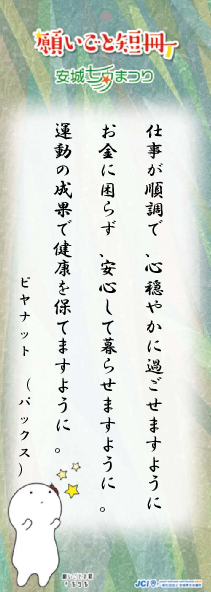 願いごと短冊
安城七夕まつり
仕事が順調で、心穏やかに過ごせますように
お金に困らず、安心して暮らせますように。
運動の成果で健康を保てますように。
ピヤナット (バックス)
願いごとの国
きーぼー
JCI